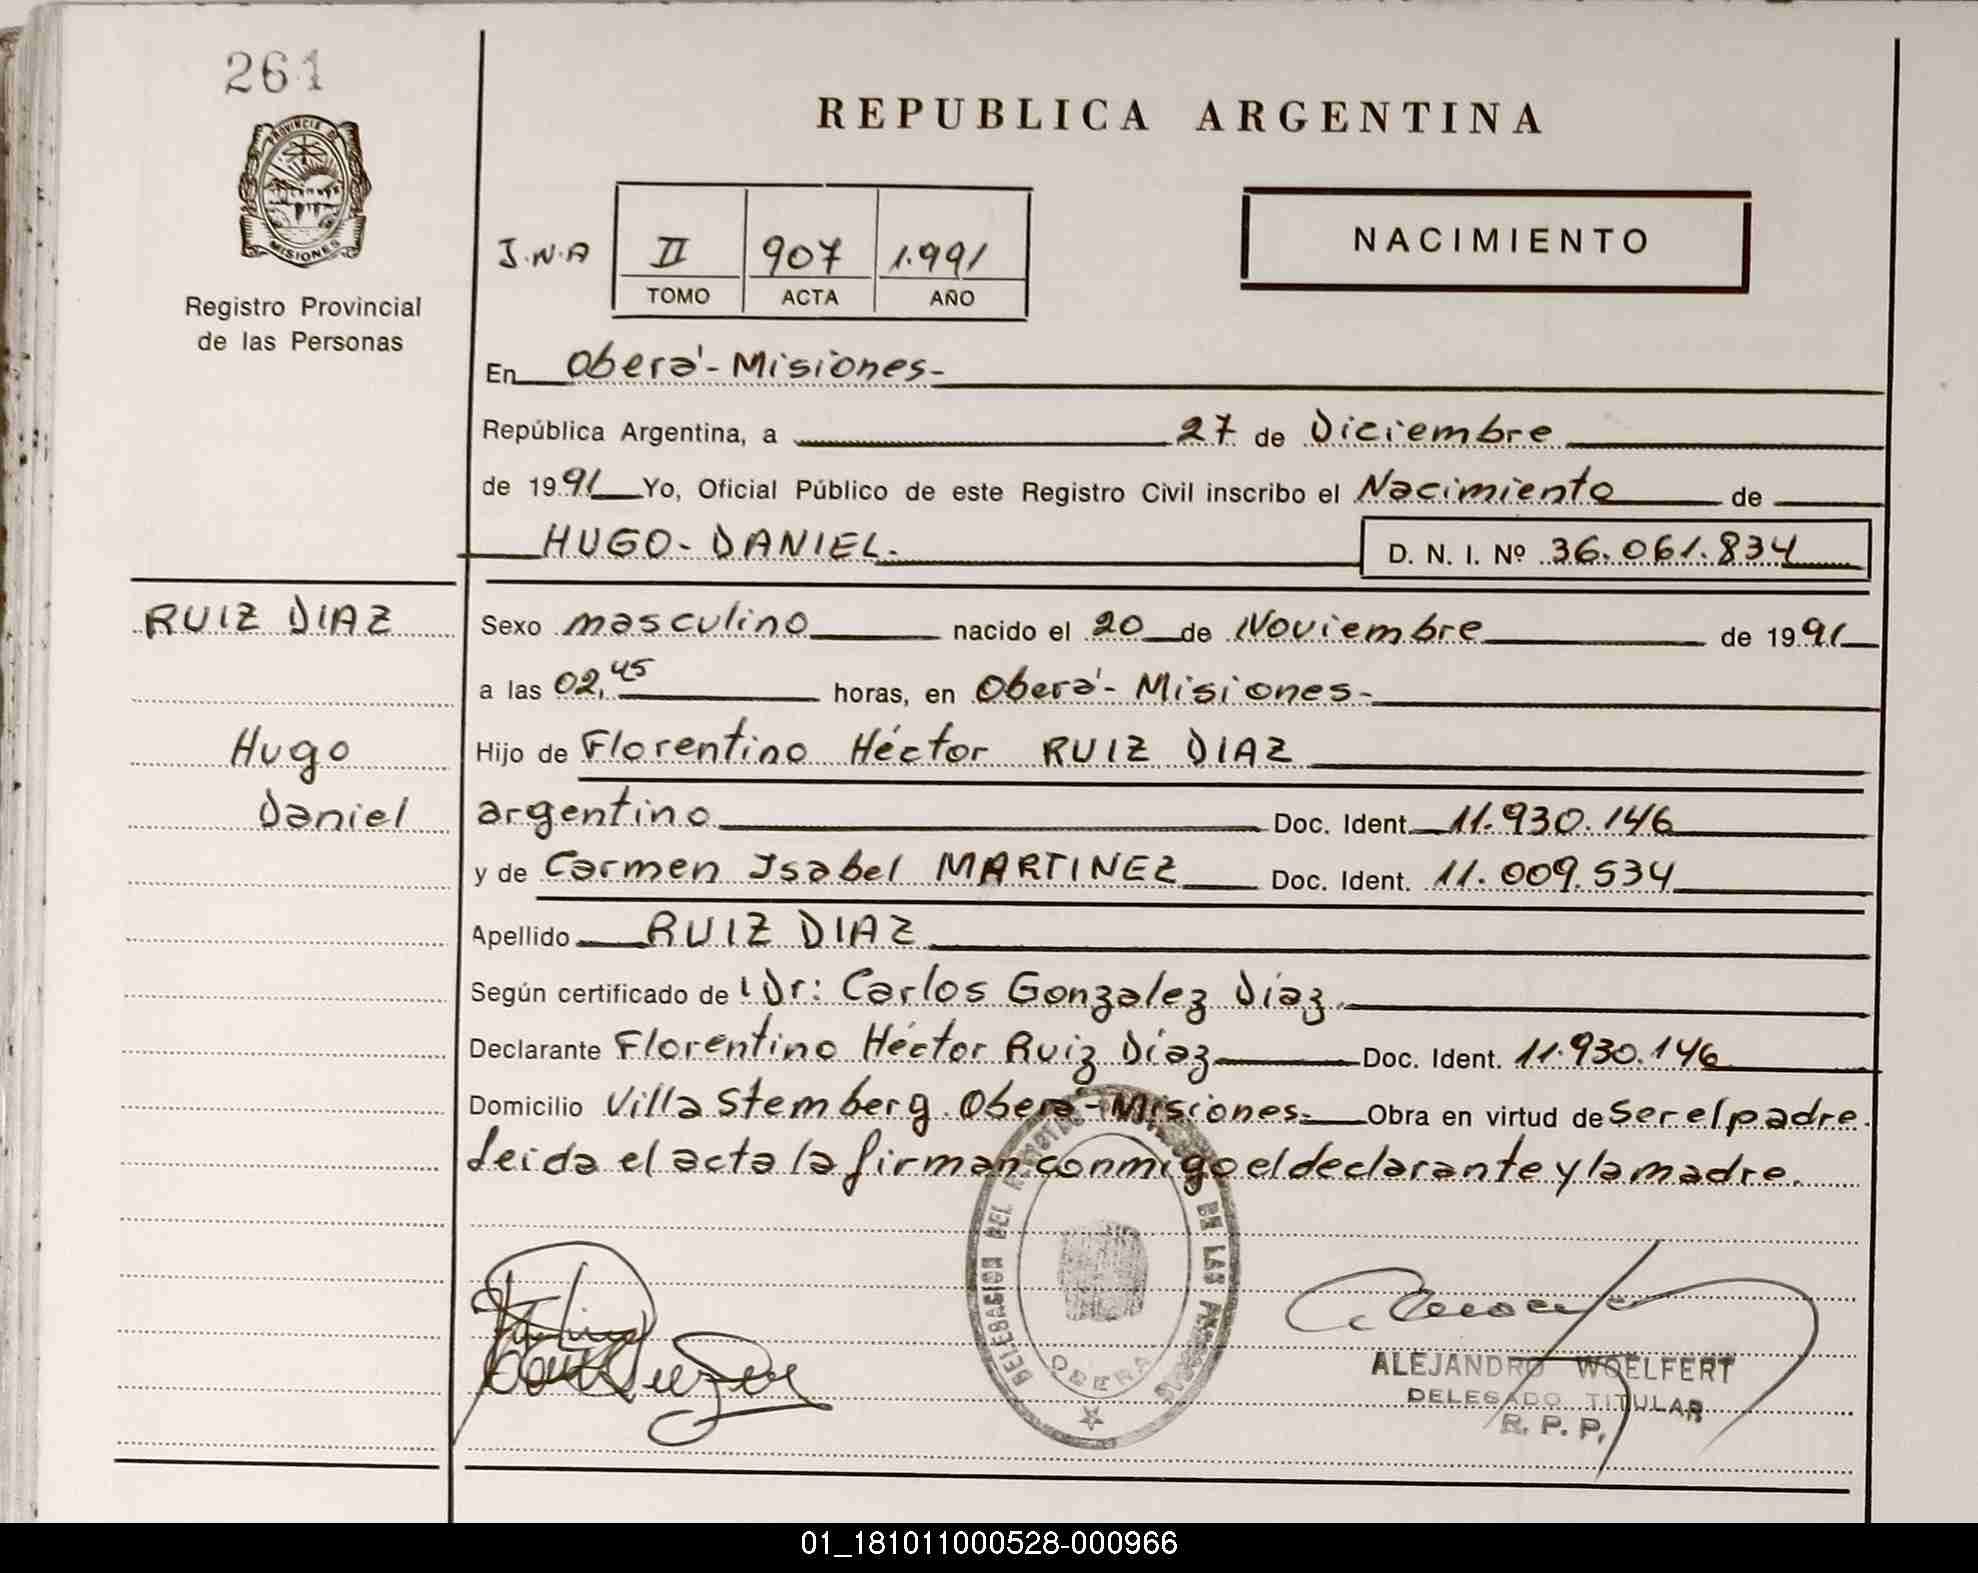 261
PROVINCIA DE
MISIONES
Registro Provincial
de las Personas
REPUBLICA ARGENTINA
J.N.A II 907 1.991
TOMO ACTA AÑO
NACIMIENTO
En Oberá - Misiones -
República Argentina, a 27 de Diciembre
de 1991 Yo, Oficial Público de este Registro Civil inscribo el Nacimiento de
HUGO - DANIEL. D. N. I. Nº 36.061.834
RUIZ DIAZ
Hugo
Daniel
Sexo masculino nacido el 20 de Noviembre de 1991
a las 02,45 horas, en Oberá - Misiones -
Hijo de Florentino Héctor RUIZ DIAZ
argentino Doc. Ident. 11.930.146
y de Carmen Isabel MARTINEZ Doc. Ident. 11.009.534
Apellido RUIZ DIAZ
Según certificado de Dr: Carlos Gonzalez Díaz.
Declarante Florentino Héctor Ruiz Díaz Doc. Ident. 11.930.146
Domicilio Villa Stemberg Oberá - Misiones - Obra en virtud de ser el padre.
Leida el acta la firman conmigo el declarante y la madre.
DELEGACION DEL REGISTRO DE LAS PERSONAS
OBERA
ALEJANDRO WOELFERT
DELEGADO TITULAR
R. P. P.
01_181011000528-000966